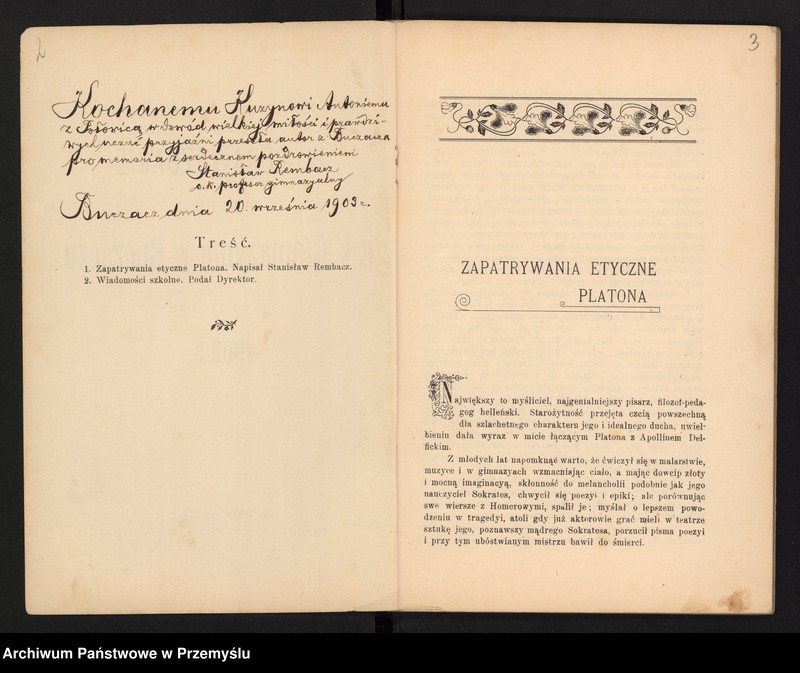 2
Kochanemu Kuzynowi Antoniemu
w dowód wielkiej miłości i prawdzi-
wych uczuć przyjaźni przesyła autor z Buczacza
pro memoria z serdecznem pozdrowieniem
Stanisław Rembacz
c. k. profesor gimnazyalny
Buczacz, dnia 20. września 1903 r.
Treść.
1. Zapatrywania etyczne Platona. Napisał Stanisław Rembacz.
2. Wiadomości szkolne. Podał Dyrektor.
3
ZAPATRYWANIA ETYCZNE
PLATONA
Największy to myśliciel, najgenialniejszy pisarz, filozof-peda-
gog helleński. Starożytność przejęta czcią powszechną
dla szlachetnego charakteru jego i idealnego ducha, uwiel-
bieniu dała wyraz w micie łączącym Platona z Apollinem Del-
fickim.
Z młodych lat napomknąć warto, że ćwiczył się w malarstwie,
muzyce i w gimnazyach wzmacniając ciało, a mając dowcip złoty
i mocną imaginacyą, skłonność do melancholii podobnie jak jego
nauczyciel Sokrates, chwycił się poezyi i epiki; ale porównując
swe wiersze z Homerowymi, spalił je; myślał o lepszem powo-
dzeniu w tragedyi, atoli gdy już aktorowie grać mieli w teatrze
sztukę jego, poznawszy mądrego Sokratesa, porzucił pisma poezyi
i przy tym ubóstwianym mistrzu bawił do śmierci.
Archiwum Państwowe w Przemyślu